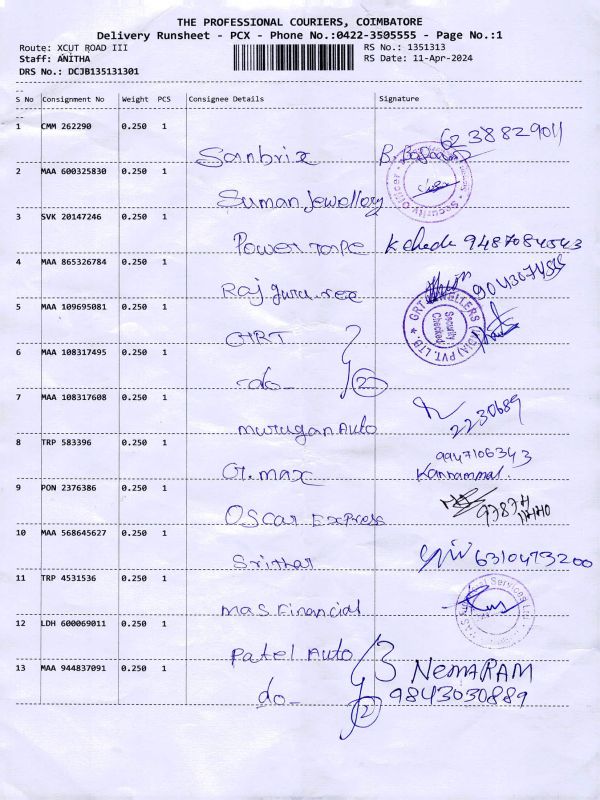 THE PROFESSIONAL COURIERS, COIMBATORE
Delivery Runsheet - PCX - Phone No.:0422-3505555 - Page No.:1
Route: XCUT ROAD III RS No.: 1351313
Staff: ANITHA RS Date: 11-Apr-2024
DRS No.: DCJB135131301
S No Consignment No Weight PCS Consignee Details Signature
1 CMM 262290 0.250 1 6238829011
Sanbrix
2 MAA 600325830 0.250 1 Security Officer
Suman Jewellery
3 SVK 20147246 0.250 1
Power Tope 9487084543
4 MAA 865326784 0.250 1
Rajguru.ree
5 MAA 109695081 0.250 1 GRT JEWELLERS (INDIA) PVT. LTD. Security Checked
GHRT
6 MAA 108317495 0.250 1
-do- 2
7 MAA 108317608 0.250 1 2230689
Murugan Auto
8 TRP 583396 0.250 1 9947106343
G.max Kannammal.
9 PON 2376386 0.250 1
Oscar Express
10 MAA 568645627 0.250 1 6310473200
Srithar
11 TRP 4531536 0.250 1
mas Financial
12 LDH 600069011 0.250 1
Patel Auto
13 MAA 944837091 0.250 1 NEMARAM
do- 2 9843030889